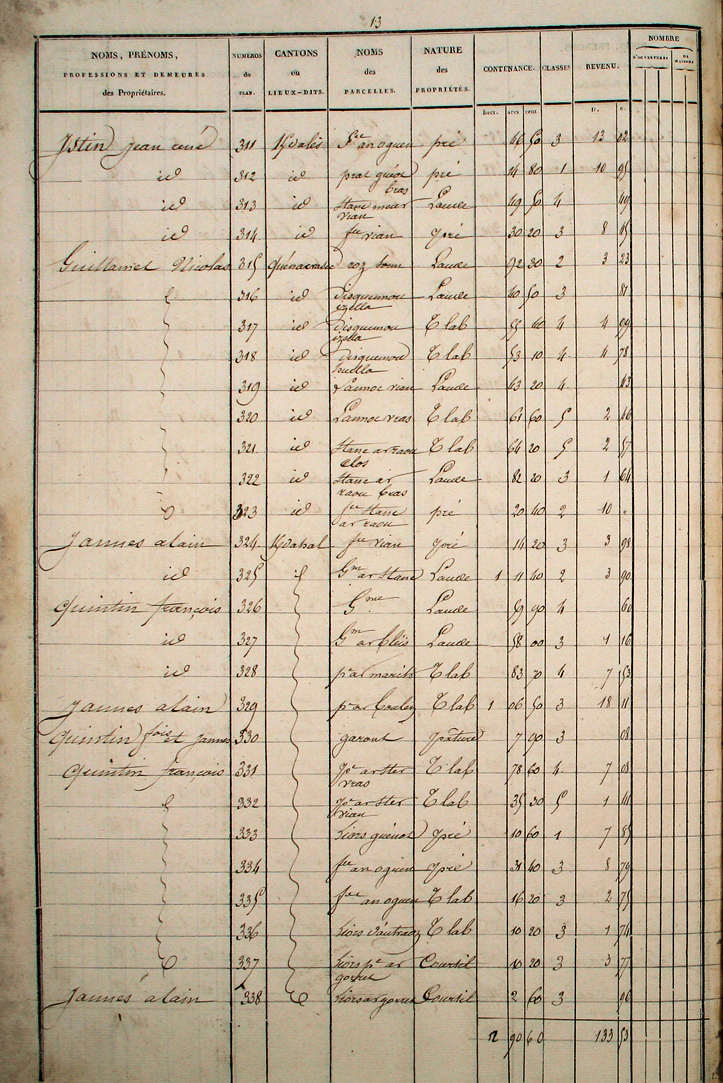 13
NOMS, PRÉNOMS,
PROFESSIONS ET DEMEURES
des Propriétaires.
NUMÉROS
du
PLAN.
CANTONS
ou
LIEUX-DITS.
NOMS
des
PARCELLES.
NATURE
des
PROPRIÉTÉS.
CONTENANCE.
CLASSES
REVENU.
NOMBRE
D'OUVERTURES.
DE MAISONS.
hect. ares cent. fc. c.
Jstin jean rené 311 pré 46 50 3 13 02
id 312 id prat guéot pré 14 80 1 10 95
bras
id 313 id stanc meur Lande 49 50 4 49
vian
id 314 id fn vian pré 30 20 3 8 65
Guillamet Nicolas 315 roz Lande 92 30 2 3 23
316 id Lande 40 50 3 81
izella
317 id T lab 55 40 4 4 99
izella
318 id T lab 53 10 4 4 78
huella
319 id Lannoc vian Lande 43 20 4 43
320 id Lannoc vras T lab 61 60 5 2 46
321 id stanc ar raou T lab 64 20 5 2 57
clos
322 id stanc ar Lande 82 20 3 1 64
raou bras
323 id fn stanc pré 20 40 2 10 "
ar raou
Jannes alain 324 fn vian pré 14 20 3 3 98
id 325 Gm ar stanc Lande 1 11 40 2 3 90
quintin françois 326 Gme Lande 59 90 4 60
id 327 Gm ar Lande 58 00 3 1 16
id 328 T lab 83 70 4 7 53
Jannes alain 329 T lab 1 06 50 3 18 11
quintin fois et jannes 330 garont pâture 7 90 3 08
quintin françois 331 pc ar ster T lab 78 60 4 7 08
vras
332 pc ar ster T lab 35 30 5 1 41
vian
333 liors guénot pré 10 60 1 7 85
334 fn an oguen pré 31 40 3 8 79
335 fn an oguen T lab 16 20 3 2 75
336 liors T lab 10 20 3 1 74
337 liors pc ar Courtil 10 20 3 3 77
338 liors ar Courtil 2 60 3 96
Jannes alain
12 90 60 133 53